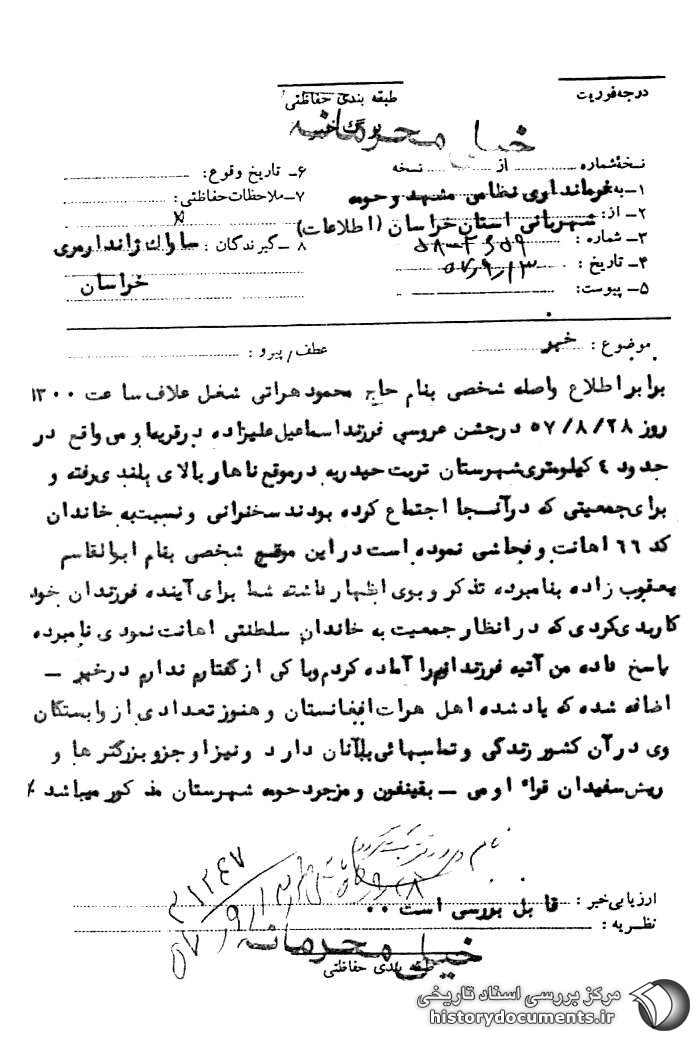 درجه فوریت
طبقه بندی حفاظتی
برگ خبر
خیلی محرمانه
نسخهٔ شماره از نسخه
۱ـ به: فرمانداری نظامی مشهد و حومه
۲ـ از: شهربانی استان خراسان (اطلاعات)
۳ـ شماره :
۴ـ تاریخ : ۵۷/۹/۱۳
۵ـ پیوست:
۶ـ تاریخ وقوع :
۷ـ ملاحظات حفاظتی :
۸ ـ گیرندگان : ساواک ژاندارمری
خراسان
موضوع : خبر
عطف/پیرو :
برابر اطلاع واصله شخصی بنام حاج محمود هراتی شغل علاف ساعت ۱۳۰۰
روز ۵۷/۸/۲۸ درجشن عروسی فرزند اسماعیل علیزاده درقریه اومی واقع در
حدود ٤ کیلومتری شهرستان تربت حیدریه درموقع ناهار بالای بلندی رفته و
برای جمعیتی که درآنجا اجتماع کرده بودند سخنرانی و نسبت به خاندان
کد ٦٦ اهانت و فحاشی نموده است در این موقع شخصی بنام ابوالقاسم
یعقوب زاده بنامبرده تذکر و بوی اظهار داشته شما برای آینده فرزندان خود
کاربدی کردی که در انظار جمعیت به خاندان سلطنتی اهانت نمودی نامبرده
پاسخ داده من آتیه فرزندانم را آماده کردم وباکی از گفتارم ندارم درخبر ــ
اضافه شده که یاد شده اهل هرات افغانستان و هنوز تعدادی از وابستگان
وی در آن کشور زندگی و تماسهائی باآنان دارد و نیز او جزو بزرگترها و
ریش سفیدان قراء اومی ــ بقینغون و مزجرد حومه شهرستان مذکور میباشد ٪
۳۱۲٤۷
۵۷/۹/۱۳
ارزیابی خبر : قابل بررسی است ۰۰
نظریه :
خیلی محرمانه
طبقه بندی حفاظتی
مرکز بررسی اسناد تاریخی
historydocuments.ir